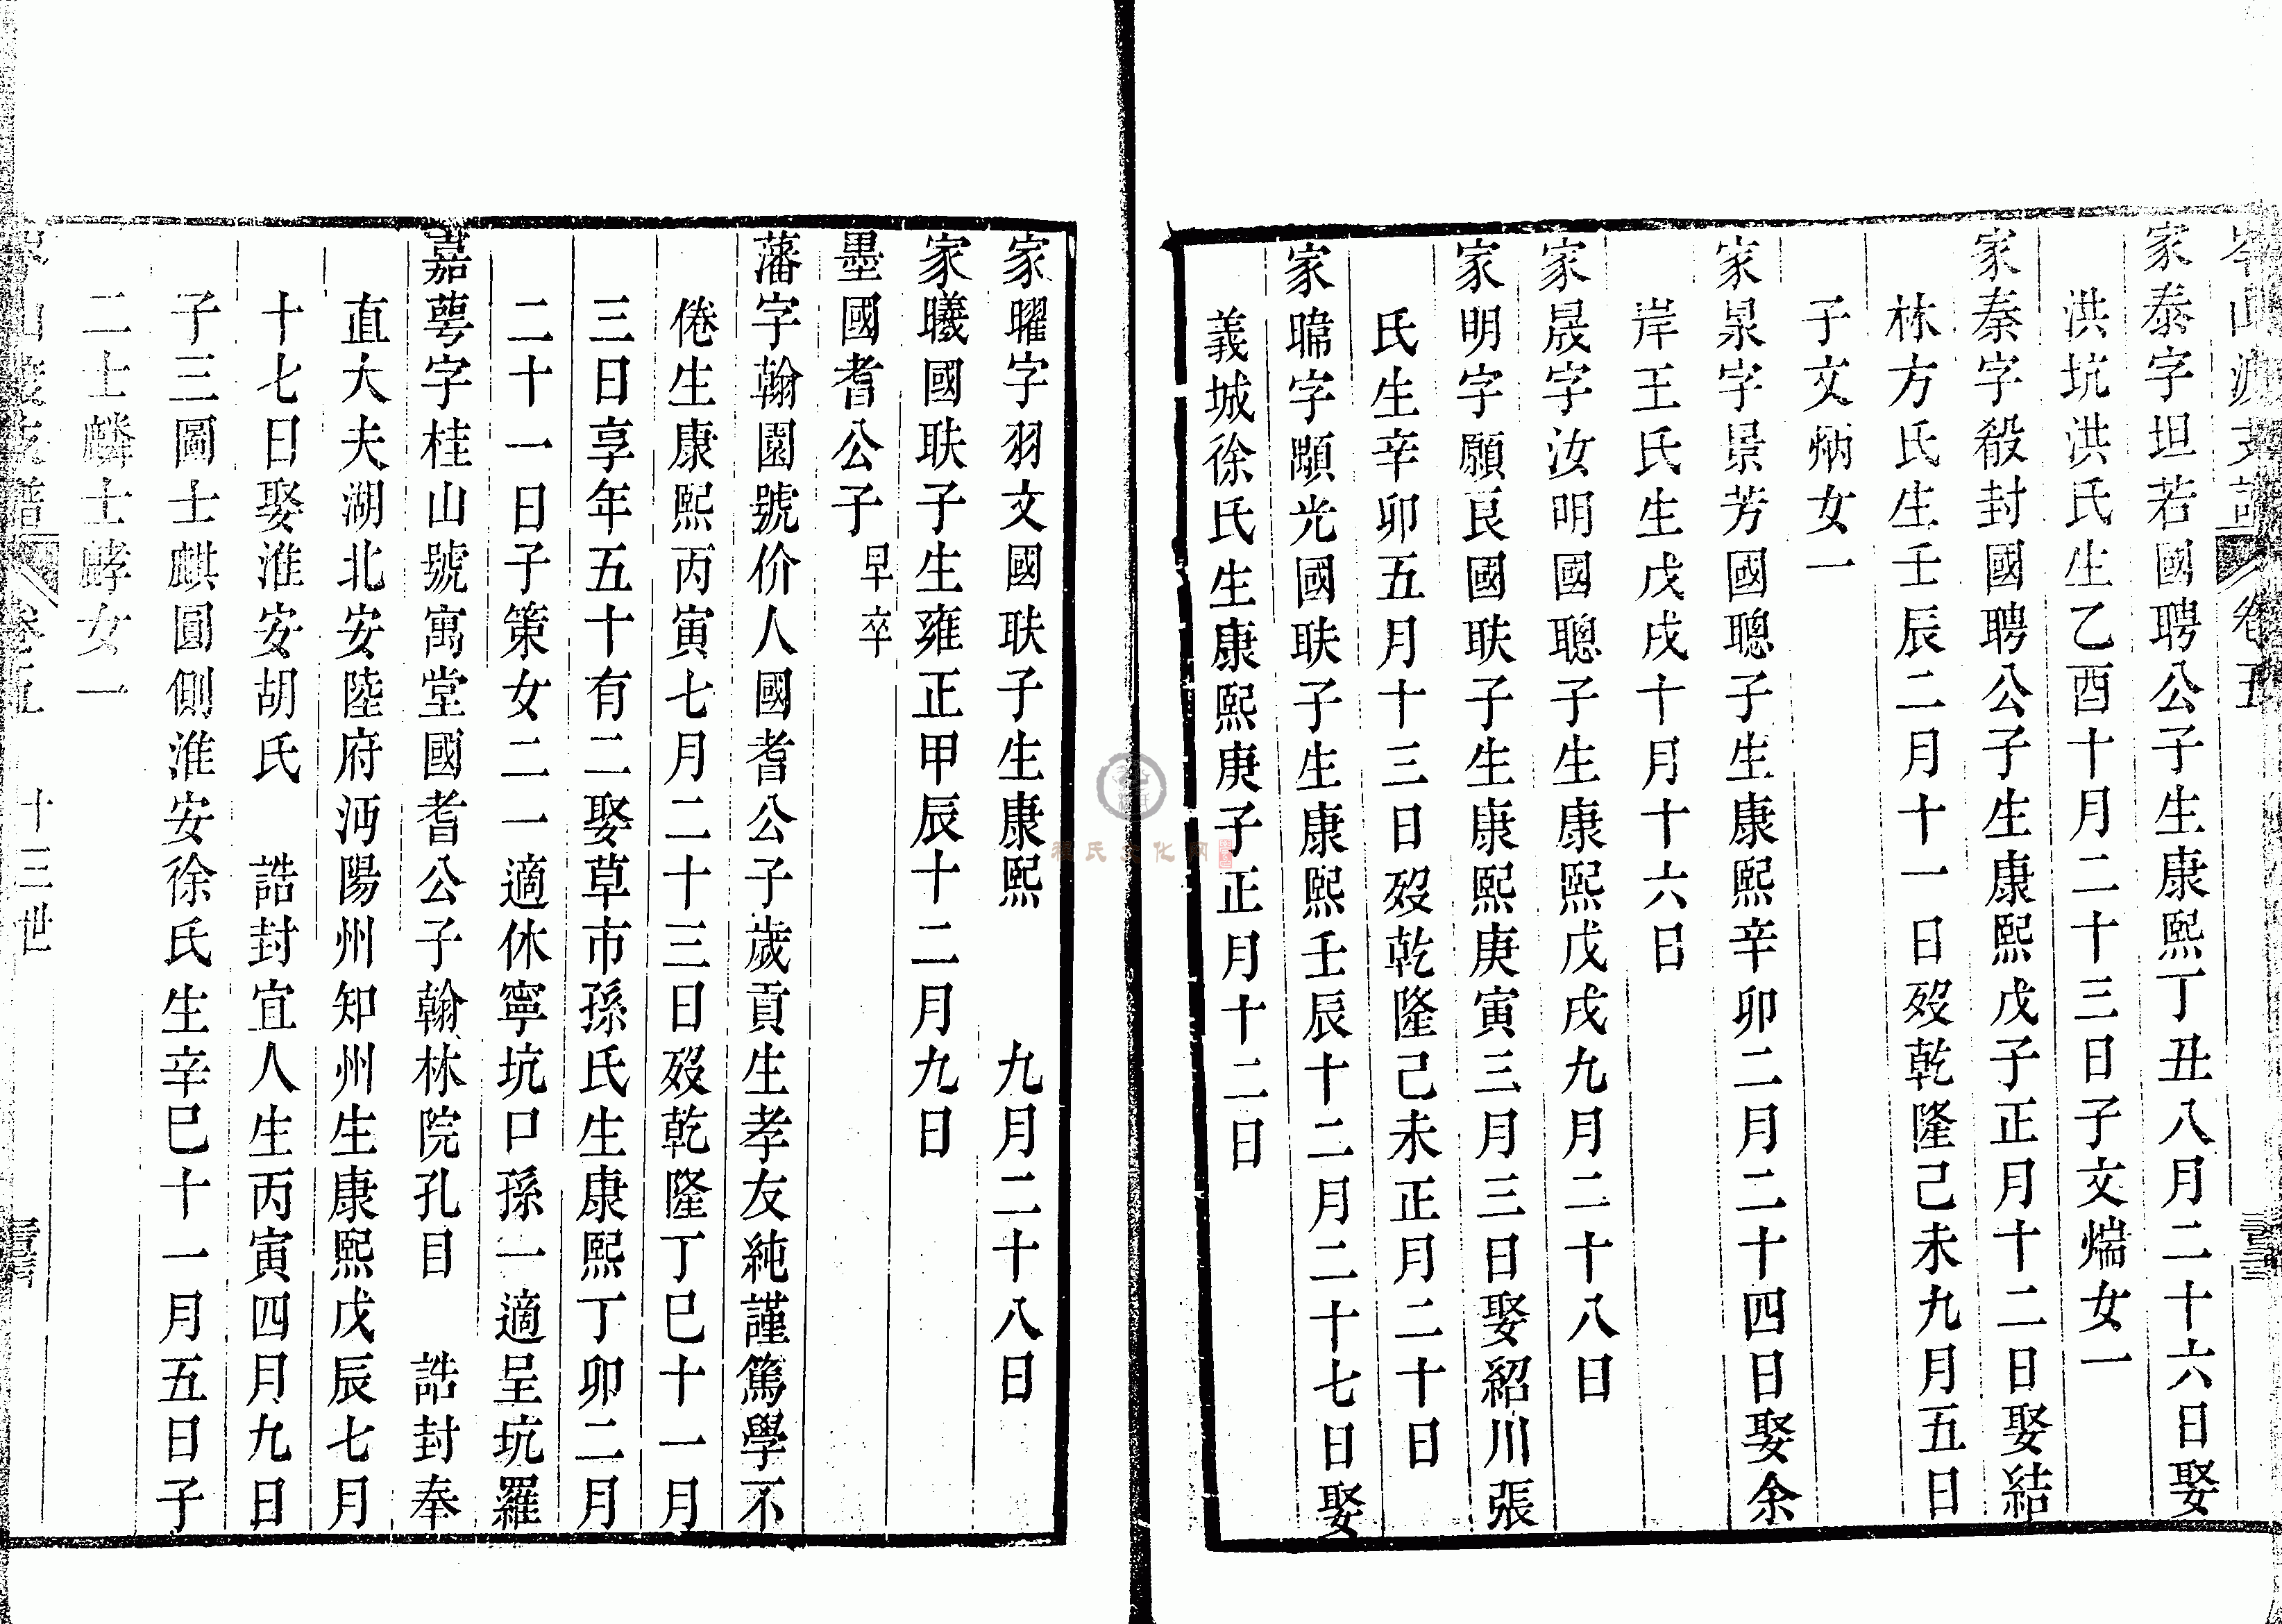 岑山渡支譜 卷五
家泰字坦若國聘公子生康熙丁丑八月二十六日娶
洪坑洪氏生乙酉十月二十三日子文煓女一
家秦字殺封國聘公子生康熙戊子正月十二日娶結
林方氏生壬辰二月十一日歿乾隆己未九月五日
子文炳女一
家杲字景芳國聰子生康熙辛卯二月二十四日娶余
岸王氏生戊戌十月十六日
家晟字汝明國聰子生康熙戊戌九月二十八日
家明字願良國聀子生康熙庚寅三月三日娶紹川張
氏生辛卯五月十三日歿乾隆己未正月二十日
家暐字顒光國聀子生康熙壬辰十二月二十七日娶
義城徐氏生康熙庚子正月十二日
家曜字羽文國聀子生康熙 九月二十八日
家曦國聀子生雍正甲辰十二月九日
墨國耆公子 早卒
藩字翰園號价人國耆公子歲貢生孝友純謹篤學不
倦生康熙丙寅七月二十三日歿乾隆丁巳十一月
三日享年五十有二娶草市孫氏生康熙丁卯二月
二十一日子策女二一適休寧坑口孫一適呈坑羅
嘉蕚字桂山號寓堂國耆公子翰林院孔目 誥封奉
直大夫湖北安陸府沔陽州知州生康熙戊辰七月
十七日娶淮安胡氏 誥封宜人生丙寅四月九日
子三圖士麒圓側淮安徐氏生辛巳十一月五日子
二士麟士𪊽女一
岑山渡支譜 卷五 十三世
程氏文化网